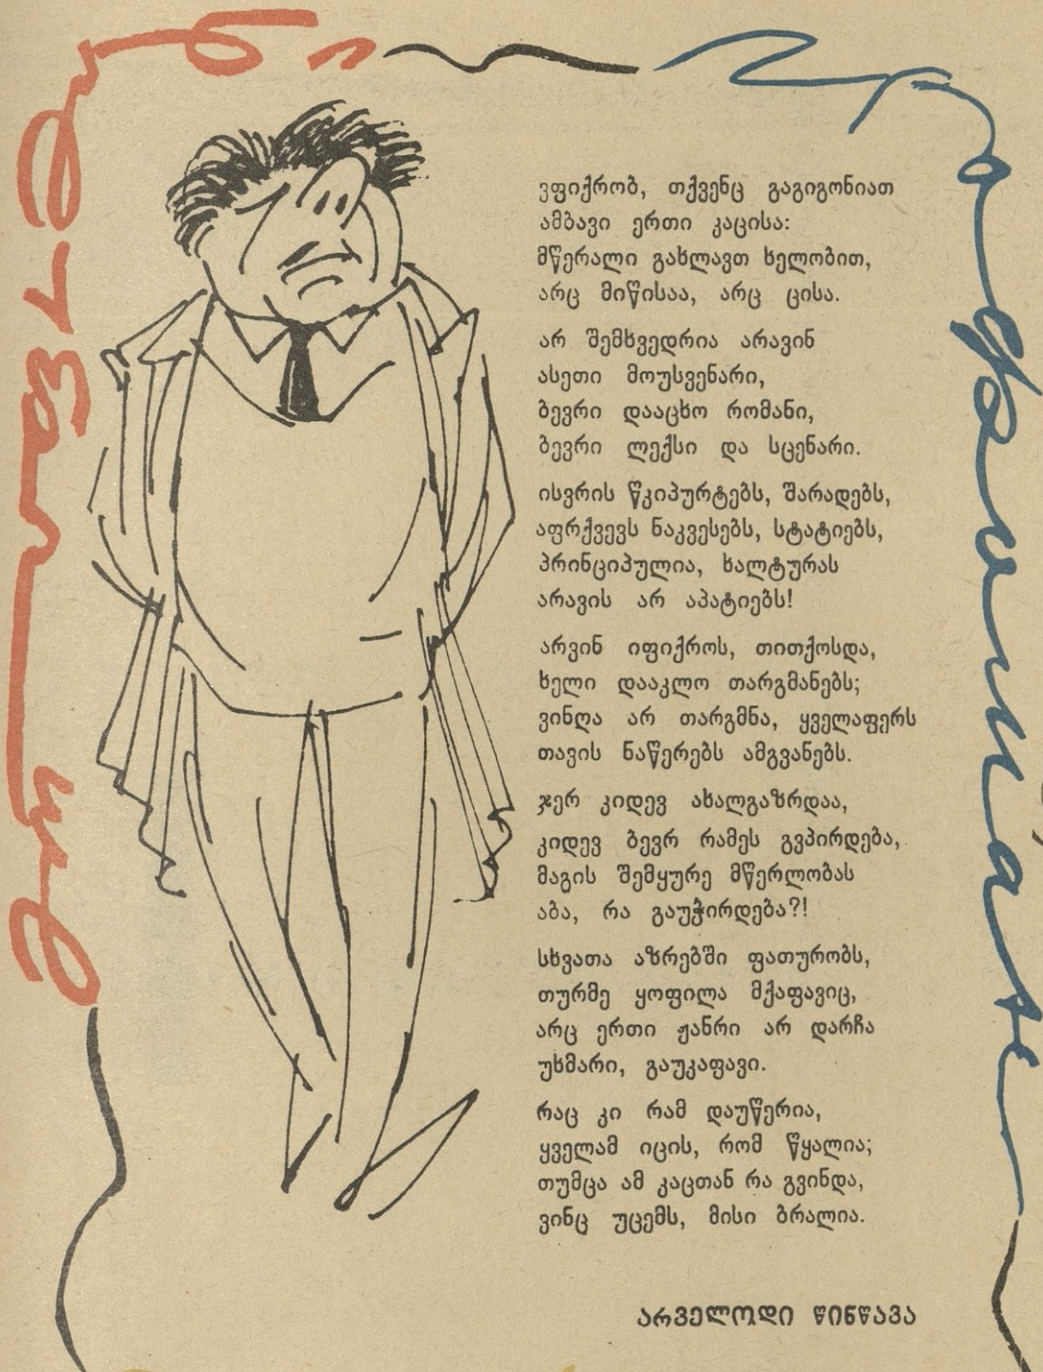 ვფიქრობ, თქვენც გაგიგონიათ
ამბავი ერთი კაცისა:
მწერალი გახლავთ ხელობით,
არც მიწისაა, არც ცისა.
არ შემხვედრია არავინ
ასეთი მოუსვენარი,
ბევრი დააცხო რომანი,
ბევრი ლექსი და სცენარი.
ისვრის წკიპურტებს, შარადებს,
აფრქვევს ნაკვესებს, სტატიებს,
პრინციპულია, ხალტურას
არავის არ აპატიებს!
არვინ იფიქროს, თითქოსდა,
ხელი დააკლო თარგმანებს;
ვინღა არ თარგმნა, ყველაფერს
თავის ნაწერებს ამგვანებს.
ჯერ კიდევ ახალგაზრდაა,
კიდევ ბევრ რამეს გვპირდება,
მაგის შემყურე მწერლობას
აბა, რა გაუჭირდება?!
სხვათა აზრებში ფათურობს,
თურმე ყოფილა მქაფავიც,
არც ერთი ჟანრი არ დარჩა
უხმარი, გაუკაფავი.
რაც კი რამ დაუწერია,
ყველამ იცის, რომ წყალია;
თუმცა ამ კაცთან რა გვინდა,
ვინც უცემს, მისი ბრალია.
არველოდი წინწავა